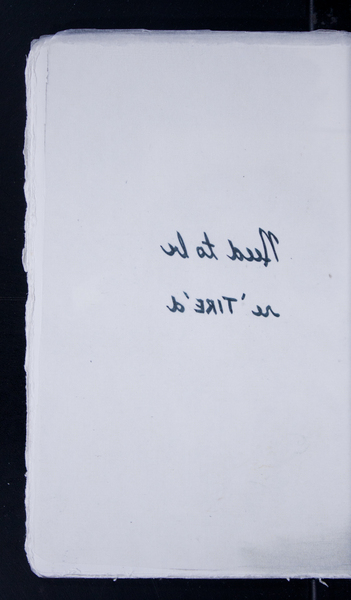 Need to be
re'TIRE'd